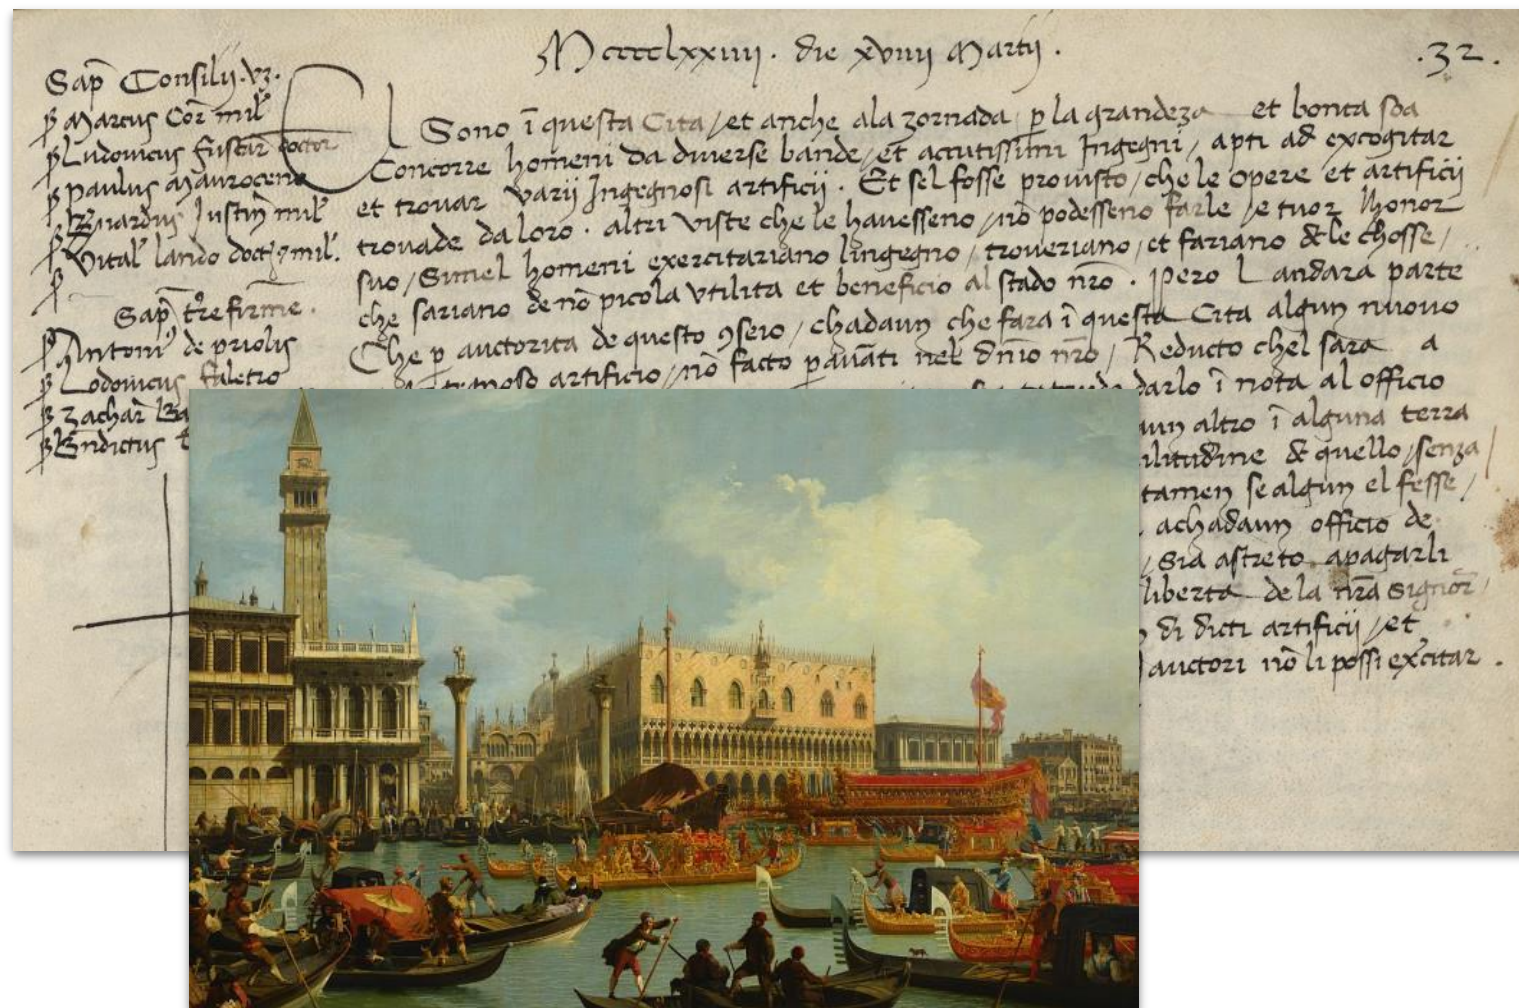 Mcccclxxiiii. die xviiii Martij.
.32.
Sap̄ Consilij. vz.
Marcus Cor̄ mil̄
Ludovicus fuscar̄ doctor
Paulus Mauroceno
Bernardus Justin̄ mil̄
Vital̄ lando doct⁊ mil̄.
Sap̄ tr̄e firme.
Antoni᾽ de priolis
Lodovicus faletro
Zachar̄
L Sono ī questa Cita / et anche ala zornada p̱ la grandeza et bonta soa
Concorre homeni da diverse bande / et accutissimi Ingegni / apti ad excogitar
et trovar varij Ingegnosi artificij. Et sel fosse provisto / che le opere et artificij
trovade da loro. altri viste che le havesseno / nō podesseno farle / e tuor lhonor
suo / Simel homeni exercitariano lingegno / troveriano / et fariano de le chosse /
che sariano de nō picola utilita et beneficio al stado nr̄o. Pero Landara parte
Che p̱ auctorita de questo ꝯseio / chadaun che fara ī questa Cita algun nuovo
artificio / nō facto p̱ avāti nel dn̄io nr̄o / Reducto chel sara a
darlo ī nota al officio
altro ī alguna terra
de quello / senza
tamen se algun el fesse /
achadaun officio de
sia astreto apagarli
liberta de la nr̄a Signor̄
di dicti artificij / et
auctori nō li possi exercitar.